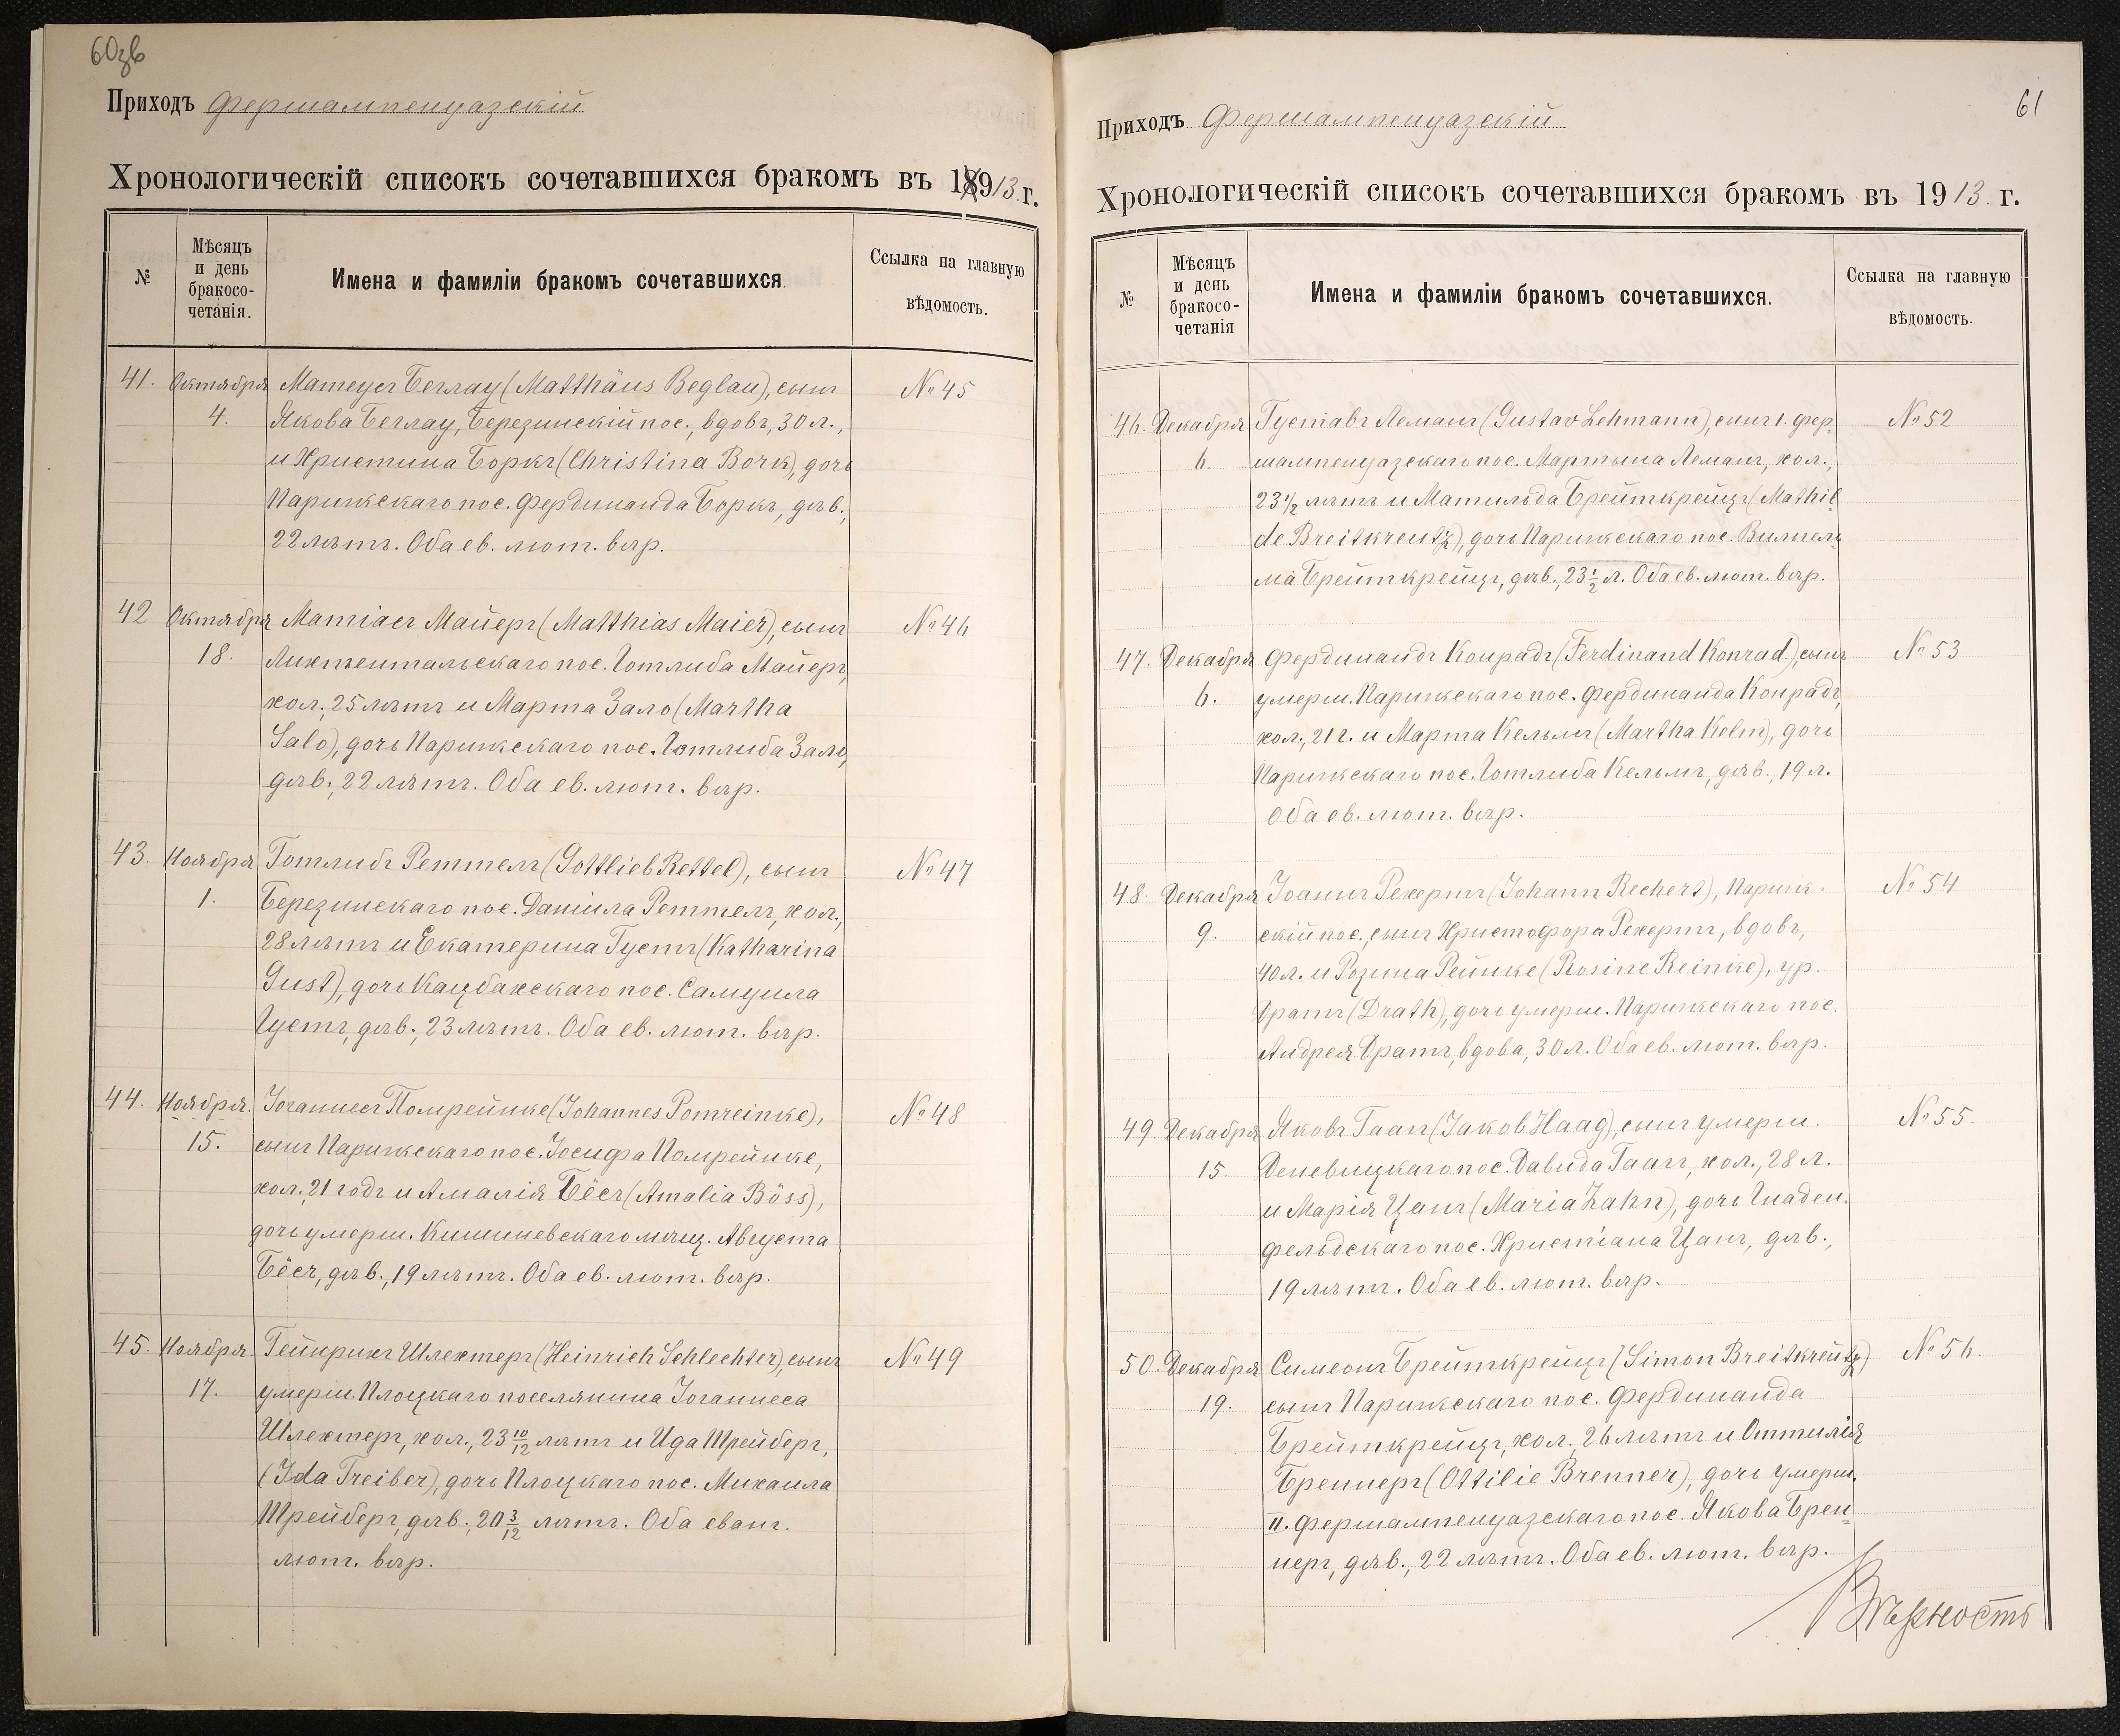 60зв
Приходъ Фершампенуазскій
Хронологическій списокъ сочетавшихся бракомъ въ 1913 г.
№
Мѣсяцъ
и день
бракосо-
четанія.
Имена и фамиліи бракомъ сочетавшихся.
Ссылка на главную
вѣдомость.
41. Октября Матеусъ Беглау (Matthäus Beglau), сынъ №45
4. Якова Беглау, Березинскій пос., вдовъ, 30 л.,
и Христина Боркъ (Christina Bork), дочь
Парижскаго пос. Фердинанда Боркъ, дѣв.,
22 лѣтъ. Оба ев. лют. вѣр.
42 Октября Матіасъ Майеръ (Matthias Maier), сынъ №46
18. Лихтентальскаго пос. Готлиба Майеръ,
хол., 25 лѣтъ и Марта Зало (Martha
Salo), дочь Парижскаго пос. Готлиба Зало,
дѣв., 22 лѣтъ. Оба ев. лют. вѣр.
43. Ноября Готлибъ Реттелъ (Gottlieb Rettel), сынъ №47
1. Березинскаго пос. Даніила Реттелъ, хол.,
28 лѣтъ и Екатерина Густъ (Katharina
Gust), дочь Кацбахскаго пос. Самуила
Густъ, дѣв., 23 лѣтъ. Оба ев. лют. вѣр.
44. Ноября. Іоганнесъ Помрейнке (Johannes Pomreinke), №48
15. сынъ Парижскаго пос. Іосифа Помрейнке,
хол., 21 годъ и Амалія Бёсъ (Amalia Böss),
дочь умерш. Кишиневскаго мѣщ. Августа
Бёсъ, дѣв., 19 лѣтъ. Оба ев. лют. вѣр.
45. Ноября. Гейнрихъ Шлехтеръ (Heinrich Schlechter), сынъ №49
17. умерш. Плоцкаго поселянина Іоганнеса
Шлехтеръ, хол., 23 10/12 лѣтъ и Ида Трейберъ,
(Ida Treiber), дочь Плоцкаго пос. Михаила
Трейберъ, дѣв., 20 3/12 лѣтъ. Оба еванг.
лют. вѣр.
61
Приходъ Фершампенуазскій
Хронологическій списокъ сочетавшихся бракомъ въ 1913 г.
№
Мѣсяцъ
и день
бракосо-
четанія
Имена и фамиліи бракомъ сочетавшихся.
Ссылка на главную
вѣдомость.
46. Декабря Густавъ Леманъ (Gustav Lehmann), сынъ I. Фер- №52
6. шампенуазскаго пос. Мартына Леманъ, хол.,
23 1/2 лѣтъ и Матильда Брейткрейцъ (Mathil-
de Breitkreutz), дочь Парижскаго пос. Вильгель-
ма Брейткрейцъ, дѣв., 23 1/2 л. Оба ев. лют. вѣр.
47. Декабря Фердинандъ Конрадъ (Ferdinand Konrad.), сынъ №53
6. умерш. Парижскаго пос. Фердинанда Конрадъ,
хол., 21 г. и Марта Кельмъ (Martha Kelm), дочь
Парижскаго пос. Готлиба Кельмъ, дѣв., 19 л.
Оба ев. лют. вѣр.
48. Декабря Іоаннъ Рехертъ (Johann Rechert), Париж- №54
9. скій пос., сынъ Христофора Рехертъ, вдовъ,
40 л. и Розина Рейнке (Rosine Reinke), ур.
Дратъ (Drath), дочь умерш. Парижскаго пос.
Андрея Дратъ, вдова, 30 л. Оба ев. лют. вѣр.
49. Декабря Яковъ Гаагъ (Jakob Haag), сынъ умерш. №55.
15. Деневицкаго пос. Давида Гаагъ, хол., 28 л.
и Марія Цанъ (Maria Zahn), дочь Гнаден-
фельдскаго пос. Христіана Цанъ, дѣв.,
19 лѣтъ. Оба ев. лют. вѣр.
50. Декабря Симеонъ Брейткрейцъ (Simon Breitkreutz) №56.
19. сынъ Парижскаго пос. Фердинанда
Брейткрейцъ, хол. 26 лѣтъ и Оттилія
Бреннеръ (Ottilie Brenner), дочь умерш.
II. Фершампенуазскаго пос. Якова Брен-
неръ, дѣв., 22 лѣтъ. Оба ев. лют. вѣр.
Вѣрность